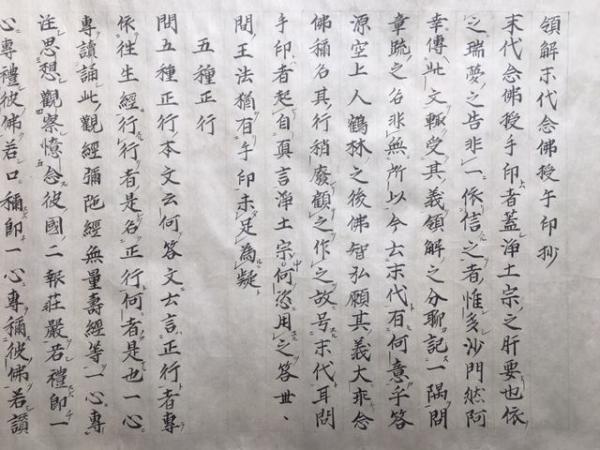 領解末代念佛授手印抄
末代念佛授手印者蓋淨土宗之肝要也依
之瑞夢之告非一依信之者惟多沙門然阿
幸傳此文輙受其義領解之分聊記一隅問
章䟽之名非無所以今云末代有何意乎答
源空上人鶴林之後佛智弘願其義大乖念
佛稱名其行稍廢顧之作之故号末代耳問
手印者起自真言淨土宗何恣用之答世、
間王法猶有手印未足為疑
五種正行
問五種正行本文云何答文云言正行者專
依徃生經行行者是名正行何者是也一心
專讀誦此觀經彌陁經無量壽經等一心專
注思想觀察憶念彼國二報莊嚴若禮即一
心專禮彼佛若口稱即一心專稱彼佛若讚